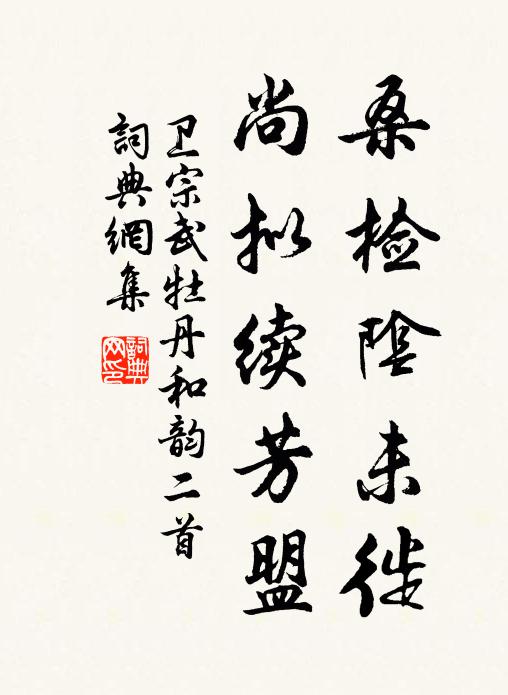 桑检陰未徙
尚拟续芳盟
卫宗武牡丹和韵二首
詞典網集
詞典
网印